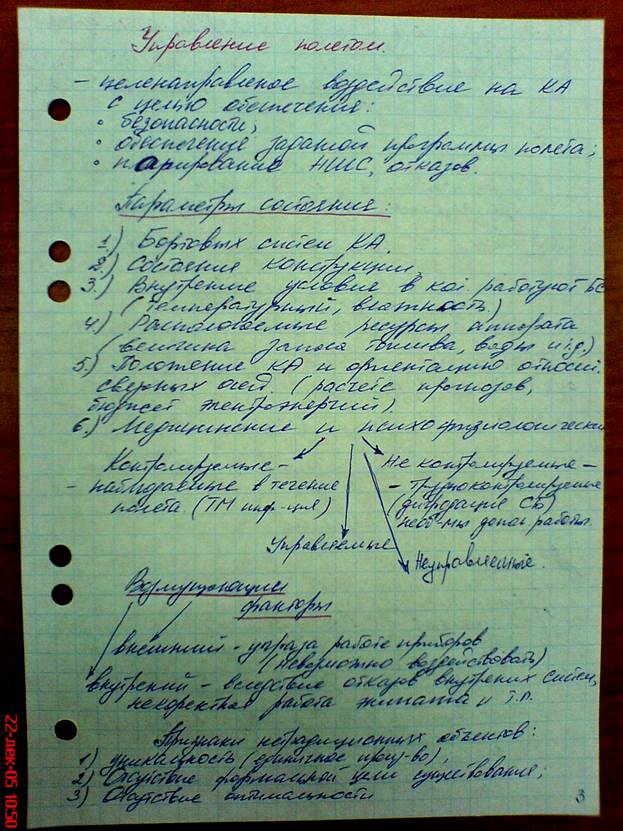 Управление полетом.
– целенаправленое воздействие на КА
с целью обеспечения:
• безопасности;
• обеспечение заданой программы полета;
• парирование НШС, отказов.
Параметры состояния:
1.) Бортовых систем КА.
2.) Состояние конструкции
3.) Внутренние условие в кот. работуют БС
(температурный, влажность.)
4) Распологаемые ресурсы аппората
(величина запаса топлива, воды и т.д.)
5.) Положение КА и ориентацию относит.
(расчёте прогнозов,
бюджет электроэнергий).
6.) Медицинские и психофизиологическая
Контролируемые –
– наблюдаемые в течение
полета. (ТМ инф-ция)
Не контролируемые –
– трудноконтролируемые
(диградация СБ)
необ-мы допол. работы.
Управляемые
Неуправляемые.
Возмущающии
факторы
внешний – угроза работе приборов
(невозможно воздействовать)
внутрений – вследствие отказов внутрених систем,
некоректная работа экипажа и т.п.
Признаки нетрадиционных объектов:
1) уникальность (единичное произ-во),
2) Отсутствие формальной цели существования;
3) Отсутствие оптимальности
3
22-дек-05 10:50